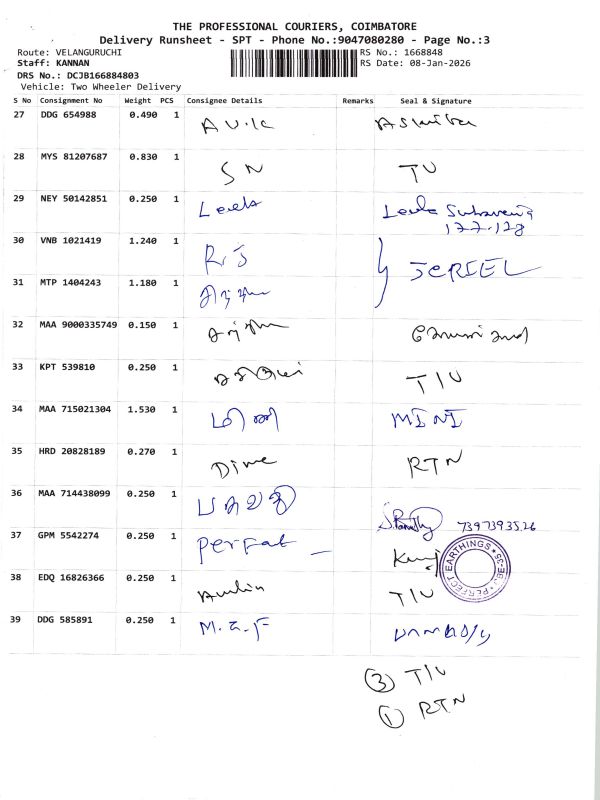 THE PROFESSIONAL COURIERS, COIMBATORE
Delivery Runsheet - SPT - Phone No.:9047080280 - Page No.:3
Route: VELANGURUCHI RS No.: 1668848
Staff: KANNAN RS Date: 08-Jan-2026
DRS No.: DCJB166884803
Vehicle: Two Wheeler Delivery
S No Consignment No Weight PCS Consignee Details Remarks Seal & Signature
27 DDG 654988 0.490 1
28 MYS 81207687 0.830 1 SN
29 NEY 50142851 0.250 1 Leela Leela
177-128
30 VNB 1021419 1.240 1 R.S
JEREEL
31 MTP 1404243 1.180 1
32 MAA 9000335749 0.150 1
33 KPT 539810 0.250 1 T/U
34 MAA 715021304 1.530 1 மினி MINI
35 HRD 20828189 0.270 1 RTN
36 MAA 714438099 0.250 1 7397393526
37 GPM 5542274 0.250 1 Perfat
PERFECT EARTHINGS
38 EDQ 16826366 0.250 1 T/U
39 DDG 585891 0.250 1
3 T/U
1 RTN